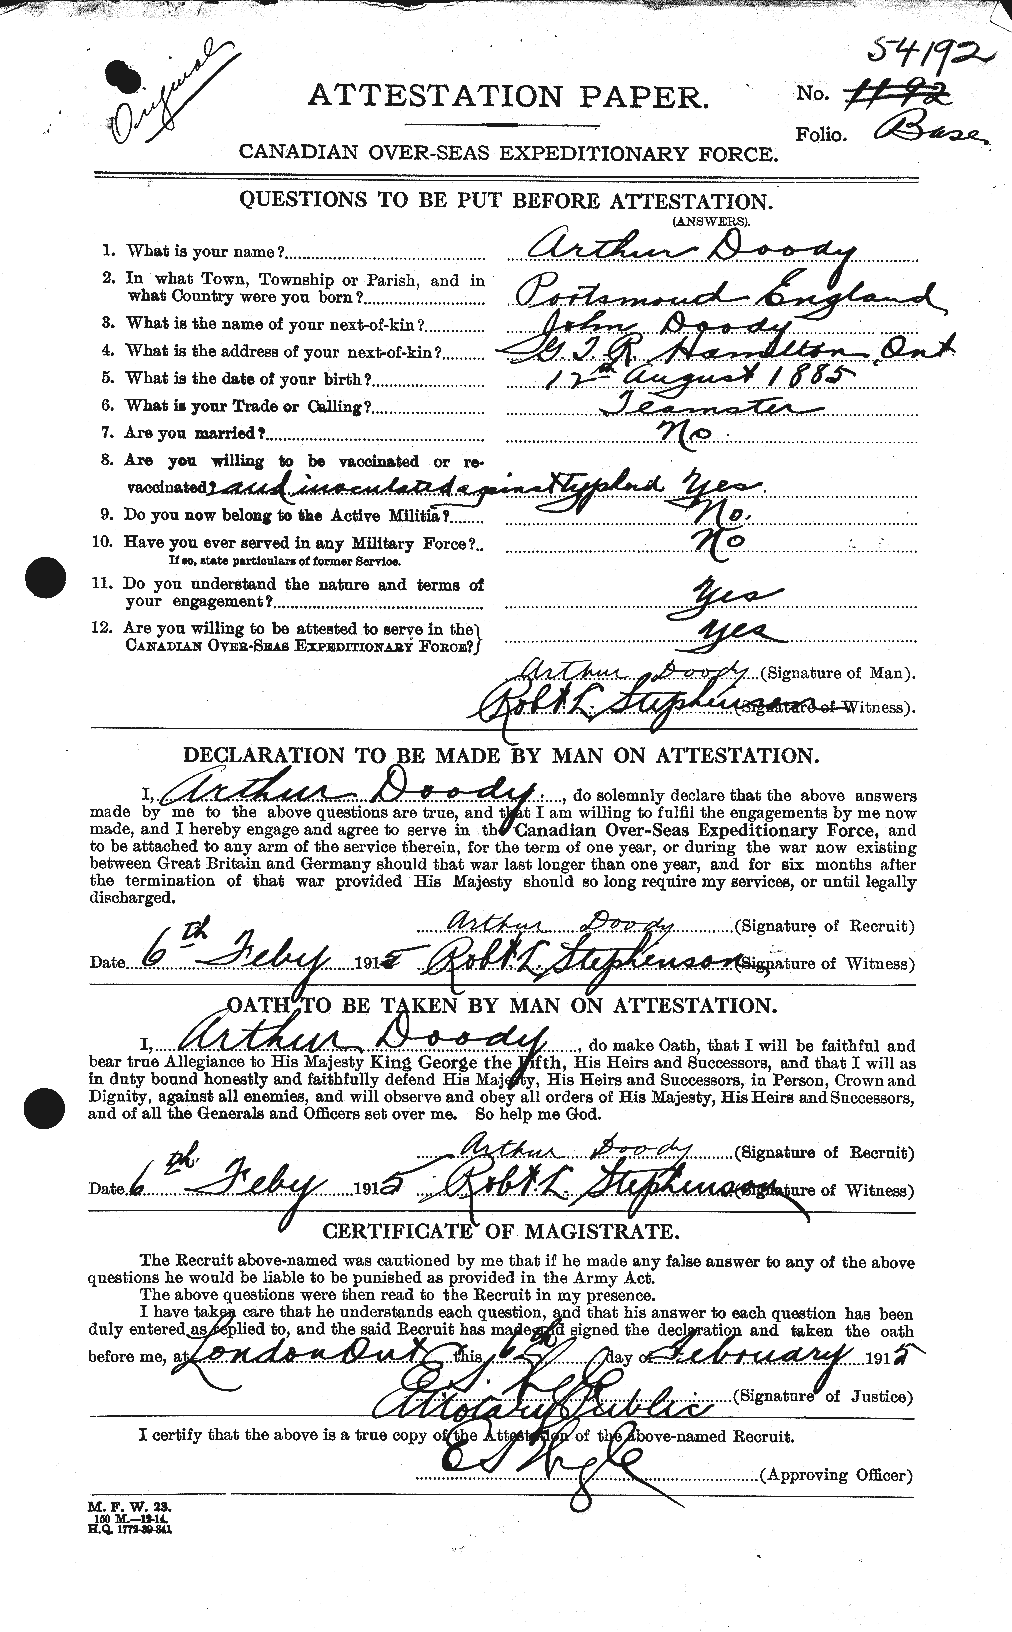 Original
54192
ATTESTATION PAPER.
No. 1192
Folio. Base
CANADIAN OVER-SEAS EXPEDITIONARY FORCE.
QUESTIONS TO BE PUT BEFORE ATTESTATION.
(ANSWERS).
1. What is your name? Arthur Doody
2. In what Town, Township or Parish, and in
what Country were you born? Portsmoud England
3. What is the name of your next-of-kin? John Doody
4. What is the address of your next-of-kin? G. T. R. Hamilton, Ont
5. What is the date of your birth? 12th August 1885
6. What is your Trade or Calling? Teamster
7. Are you married? No
8. Are you willing to be vaccinated or re-
vaccinated? and inoculated against Typhoid Yes.
9. Do you now belong to the Active Militia? No.
10. Have you ever served in any Military Force? No
If so, state particulars of former Service.
11. Do you understand the nature and terms of
your engagement? Yes
12. Are you willing to be attested to serve in the
CANADIAN OVER-SEAS EXPEDITIONARY FORCE? Yes
Arthur Doody (Signature of Man).
Robt L. Stephenson (Signature of Witness).
DECLARATION TO BE MADE BY MAN ON ATTESTATION.
I, Arthur Doody, do solemnly declare that the above answers
made by me to the above questions are true, and that I am willing to fulfil the engagements by me now
made, and I hereby engage and agree to serve in the Canadian Over-Seas Expeditionary Force, and
to be attached to any arm of the service therein, for the term of one year, or during the war now existing
between Great Britain and Germany should that war last longer than one year, and for six months after
the termination of that war provided His Majesty should so long require my services, or until legally
discharged.
Arthur Doody (Signature of Recruit)
Date 6th Feby 1915 Robt. L. Stephenson (Signature of Witness)
OATH TO BE TAKEN BY MAN ON ATTESTATION.
I, Arthur Doody, do make Oath, that I will be faithful and
bear true Allegiance to His Majesty King George the Fifth, His Heirs and Successors, and that I will as
in duty bound honestly and faithfully defend His Majesty, His Heirs and Successors, in Person, Crown and
Dignity, against all enemies, and will observe and obey all orders of His Majesty, His Heirs and Successors,
and of all the Generals and Officers set over me. So help me God.
Arthur Doody (Signature of Recruit)
Date 6th Feby 1915 Robt L. Stephenson (Signature of Witness)
CERTIFICATE OF MAGISTRATE.
The Recruit above-named was cautioned by me that if he made any false answer to any of the above
questions he would be liable to be punished as provided in the Army Act.
The above questions were then read to the Recruit in my presence.
I have taken care that he understands each question, and that his answer to each question has been
duly entered as replied to, and the said Recruit has made and signed the declaration and taken the oath
before me, at London Ont this 6th day of February 1915
E. S. Wigle (Signature of Justice)
A Notary Public
I certify that the above is a true copy of the Attestation of the above-named Recruit.
E S Wigle
(Approving Officer)
M. F. W. 23.
150 M.—12-14.
H.Q. 1772-39-841.